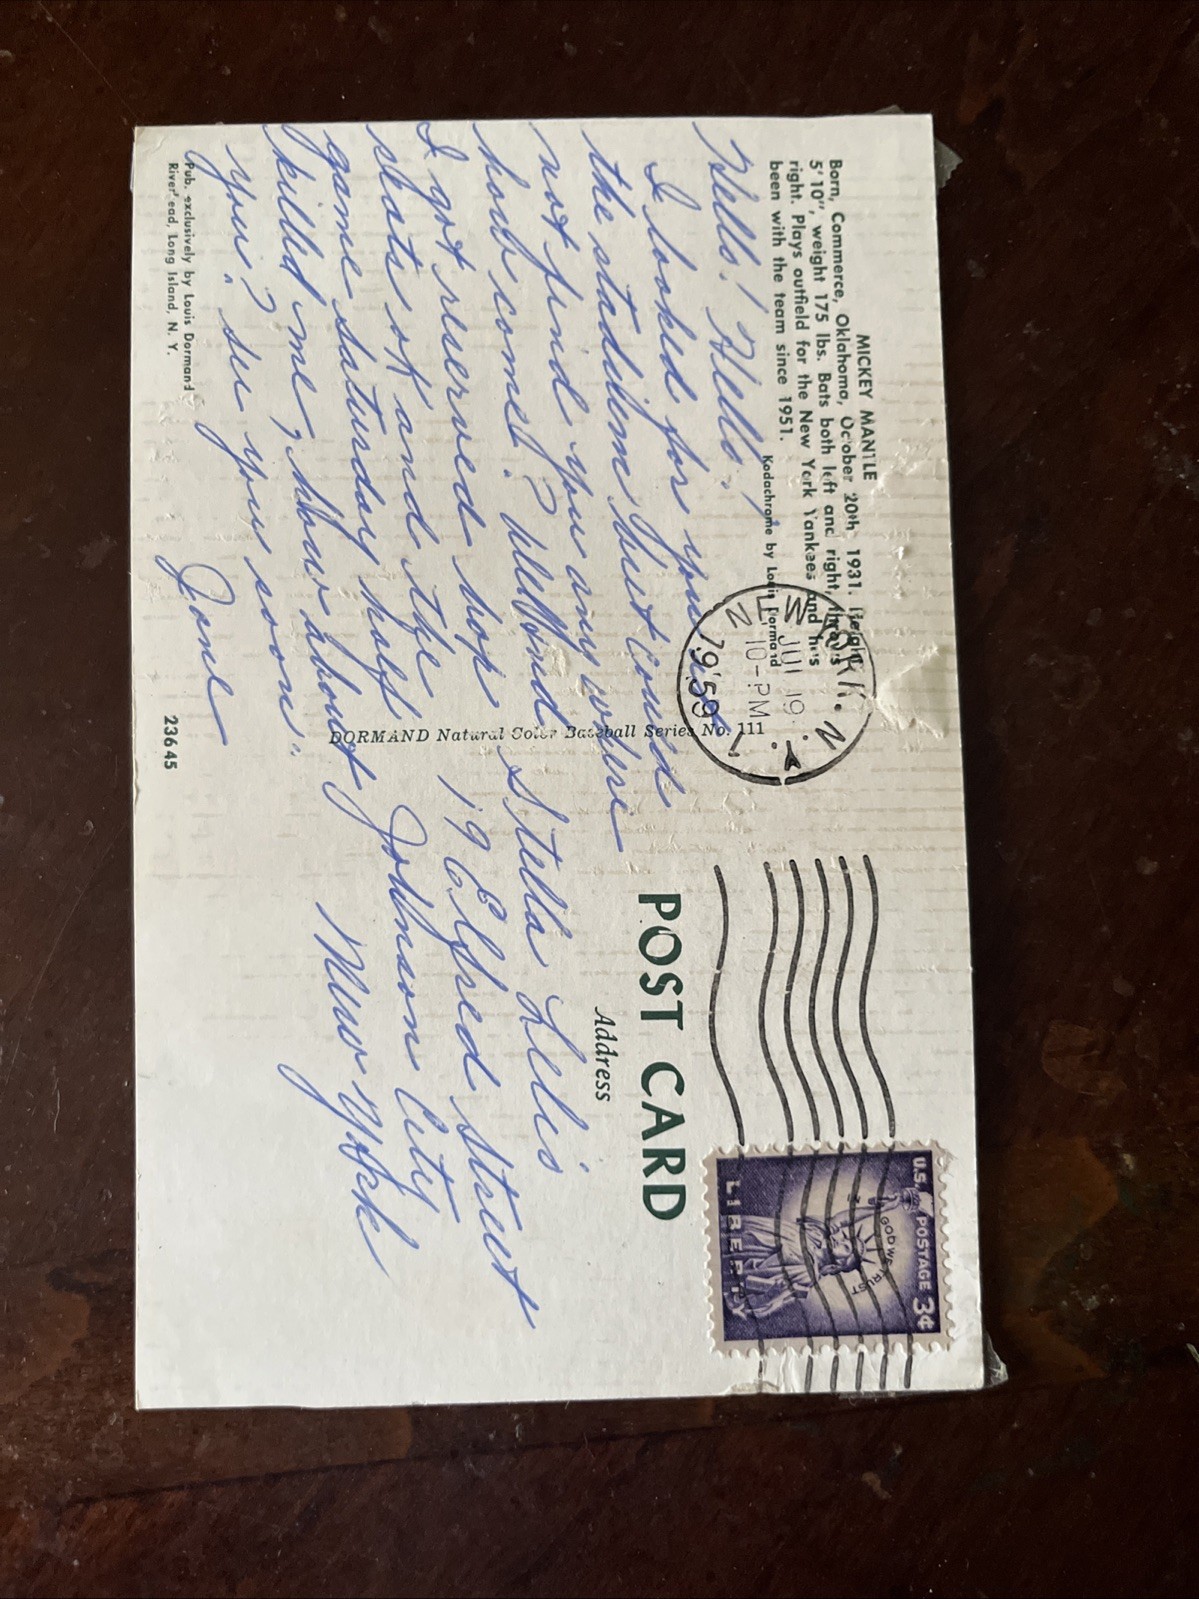 MICKEY MANTLE
Born, Commerce, Oklahoma, October 20th, 1931. Height
5' 10", weight 175 lbs. Bats both left and right, throws
right. Plays outfield for the New York Yankees and has
been with the team since 1951.
Kodachrome by Louis Dormand
Hello! Hello!,
I looked for you in
the stadium but could
not find you any where
how come? 
I got reserved box
seats ok and the
game saturday half
killed me, How about
you? see you soon.
Jane
Pub. exclusively by Louis Dormand
Riverhead, Long Island, N. Y.
23645
DORMAND Natural Color Baseball Series No. 111
NEWARK, N.J.
JUL 19
10-PM
1959
U.S. POSTAGE 3¢
IN GOD WE TRUST
LIBERTY
POST CARD
Address
Stella Lelis
19 Eldred Street
Johnson City
New York